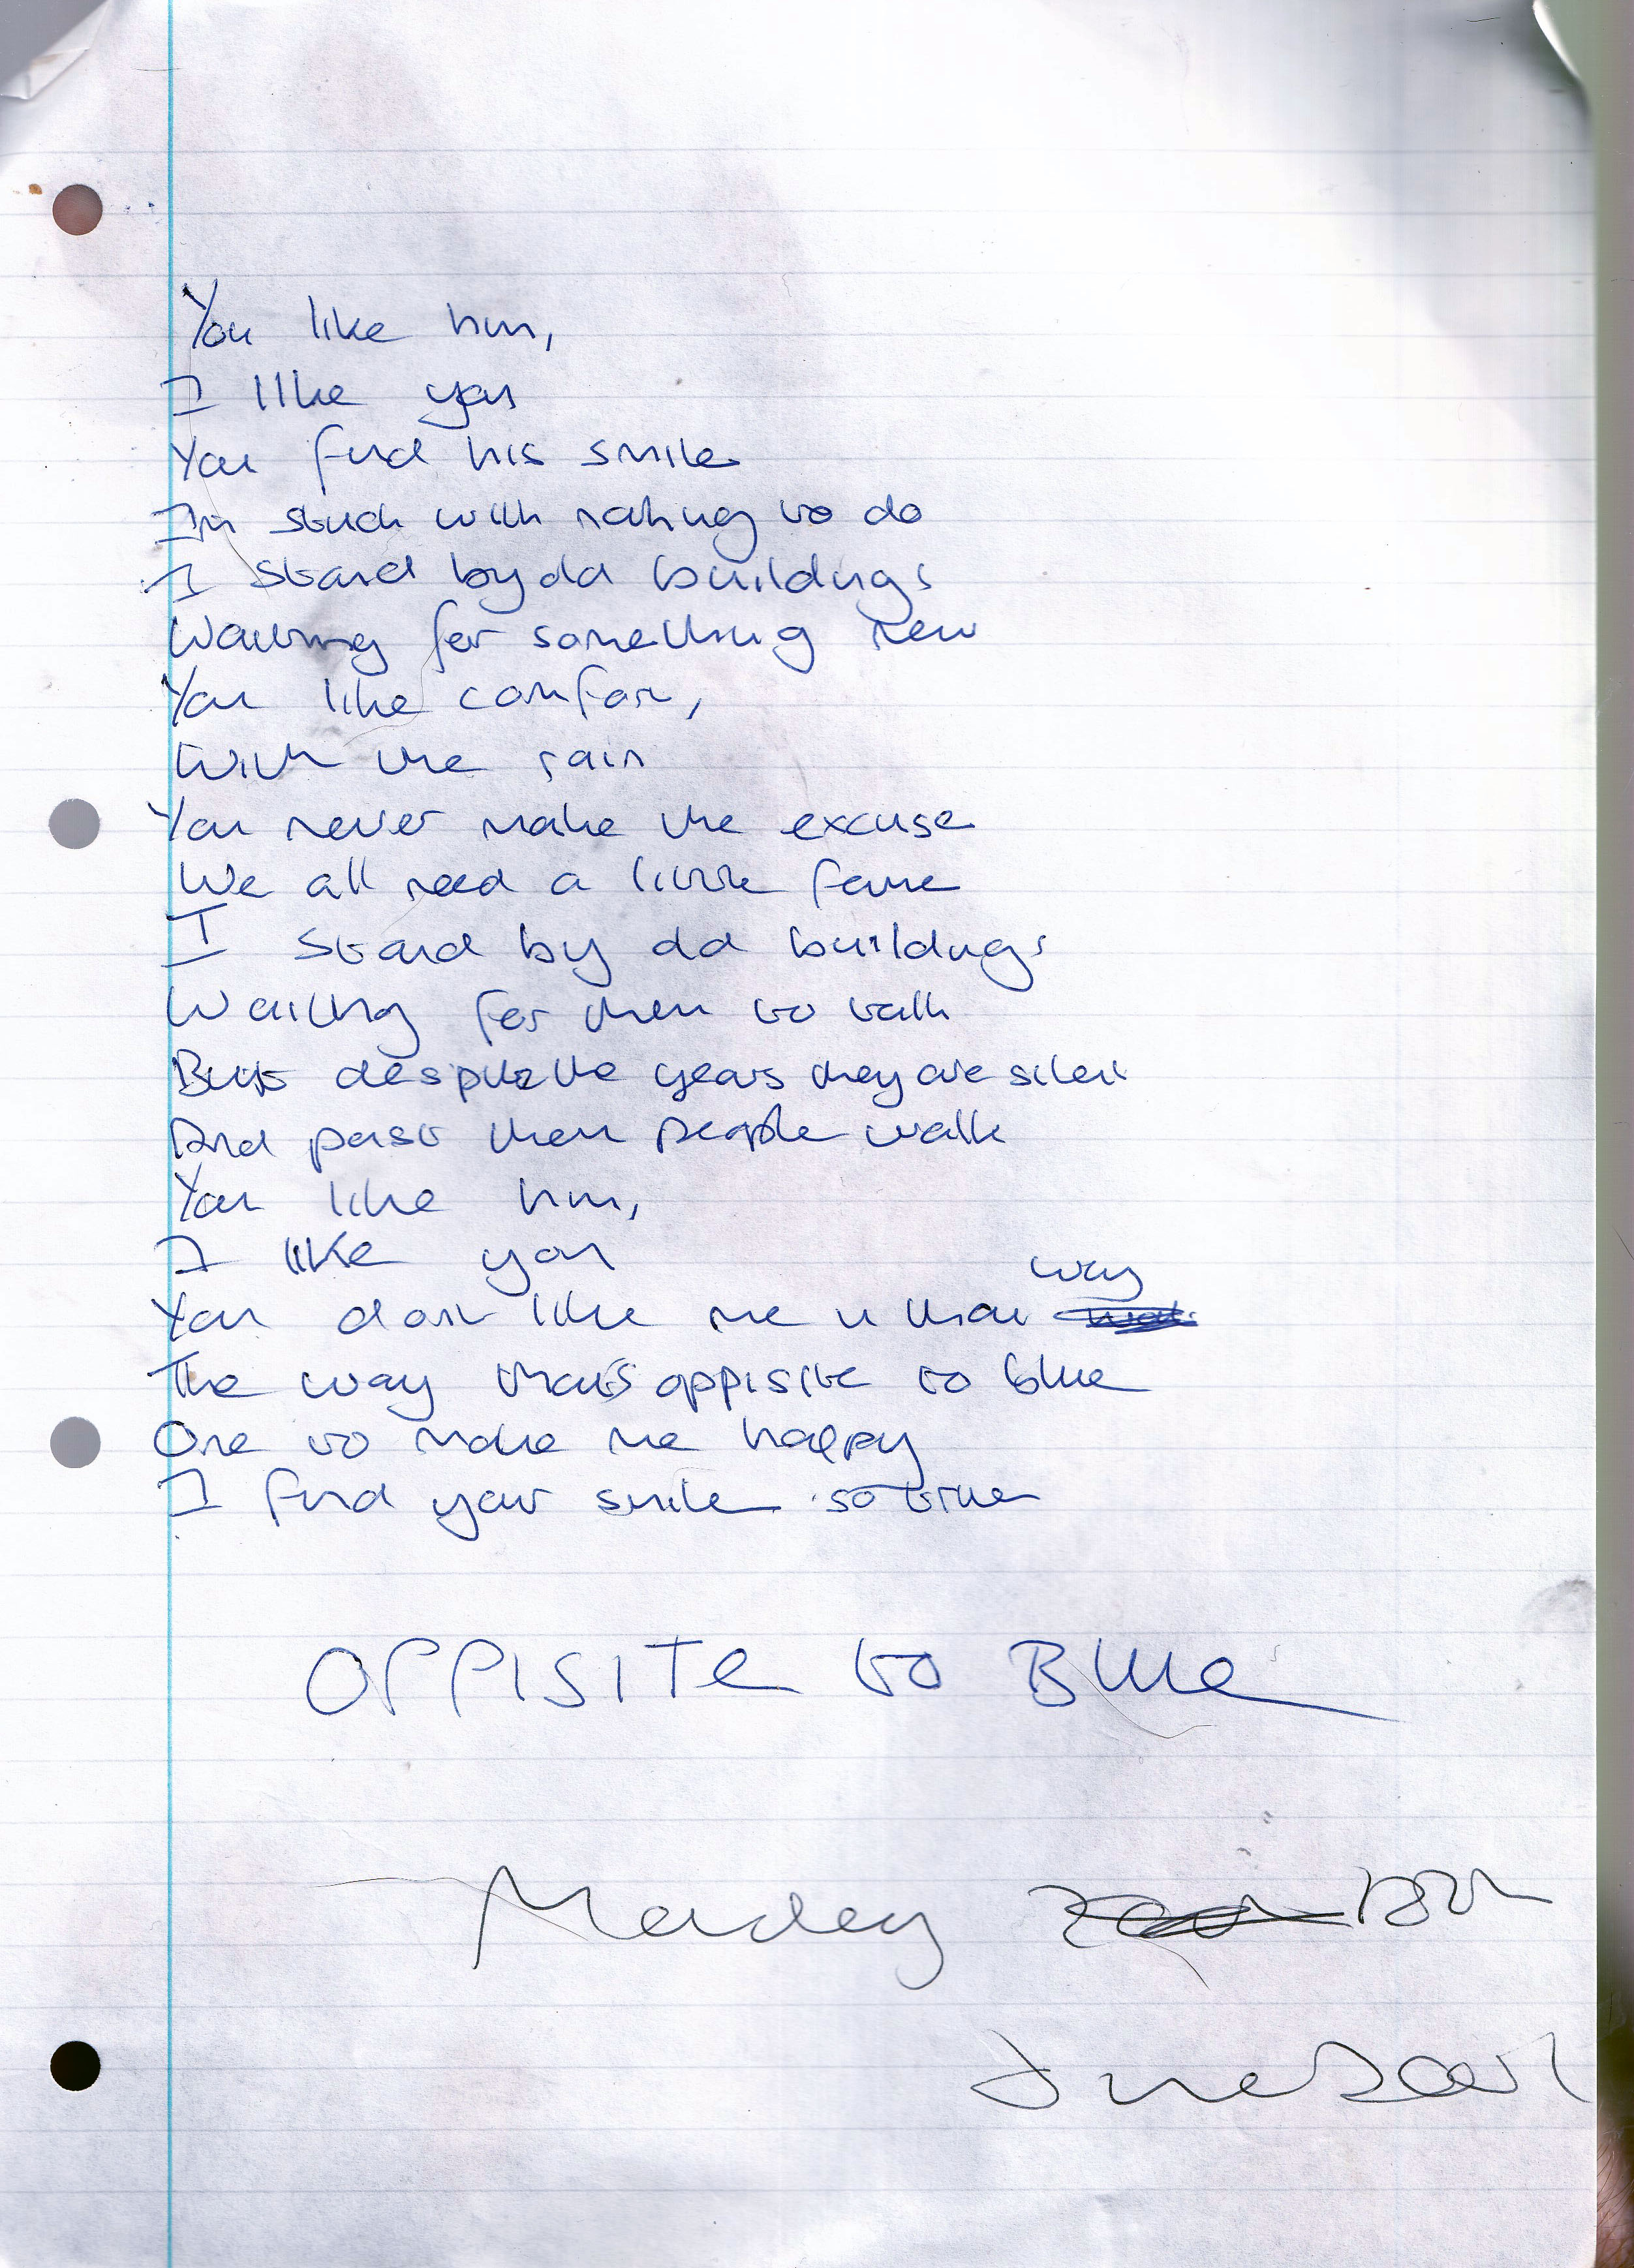 You like him,
I like you
You find his smile
Im stuck with nothing to do
I stand by old buildings
Waiting for something new
You like comfort,
With the rain
You never make the excuse
We all need a little fame
I stand by old buildings
Waiting for them to talk
But despite the years they are silent
And past them people walk
You like him,
I like you
way
You dont like me in that
The way that's oppisite to blue
One to make me happy
I find your smile so true
OPPISITE to Blue
Monday 18th
June